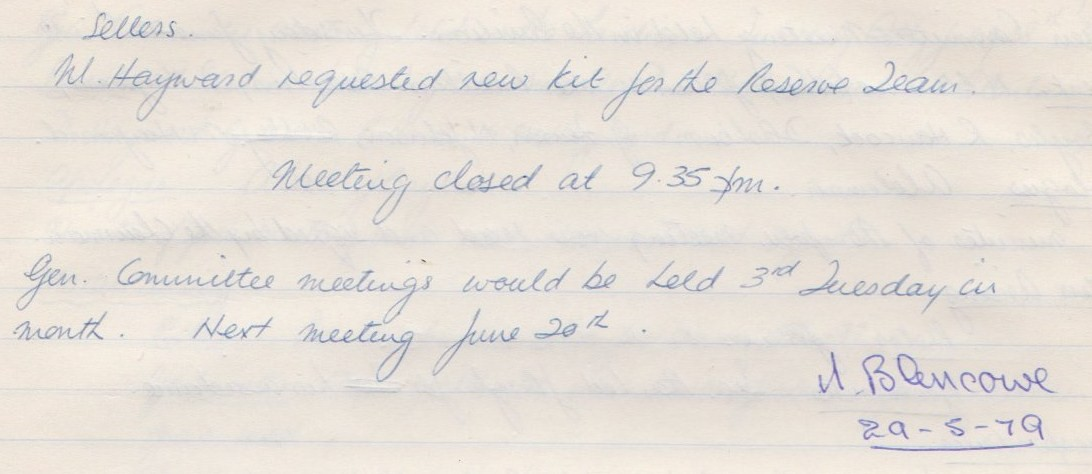 Sellers.
M. Hayward requested new kit for the Reserve Team.
Meeting closed at 9.35 pm.
Gen. Committee meetings would be held 3rd Tuesday in
month. Next meeting June 20th.
Blencowe
29-5-79